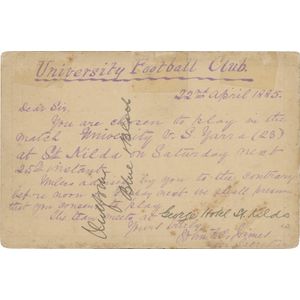 University Football Club.
22nd April 1885.
Dear Sir,
You are chosen to play in the
match University V.S Yarra (23)
at St. Kilda on Saturday next
25th instant.
Unless advised by you to the contrary
before noon next we shall presume
that you consent to play.
The team meets at George Hotel St. Kilda
Yours truly
Uniform
Blue & Black